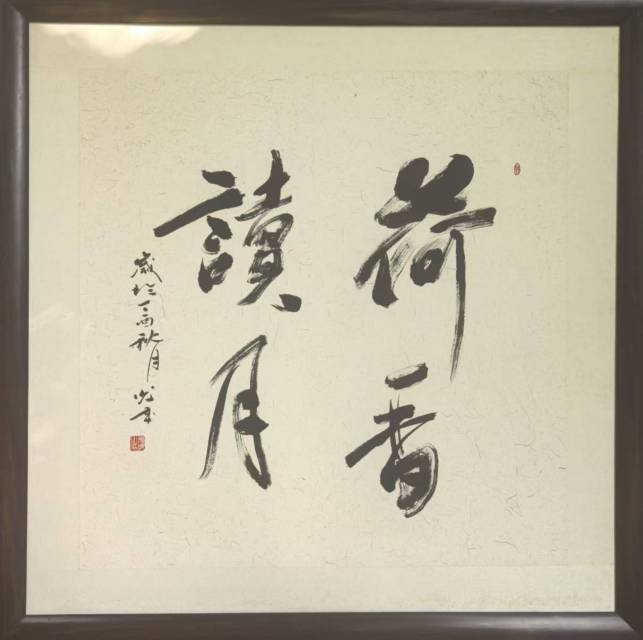 荷香
讀月
歲於丙秋月